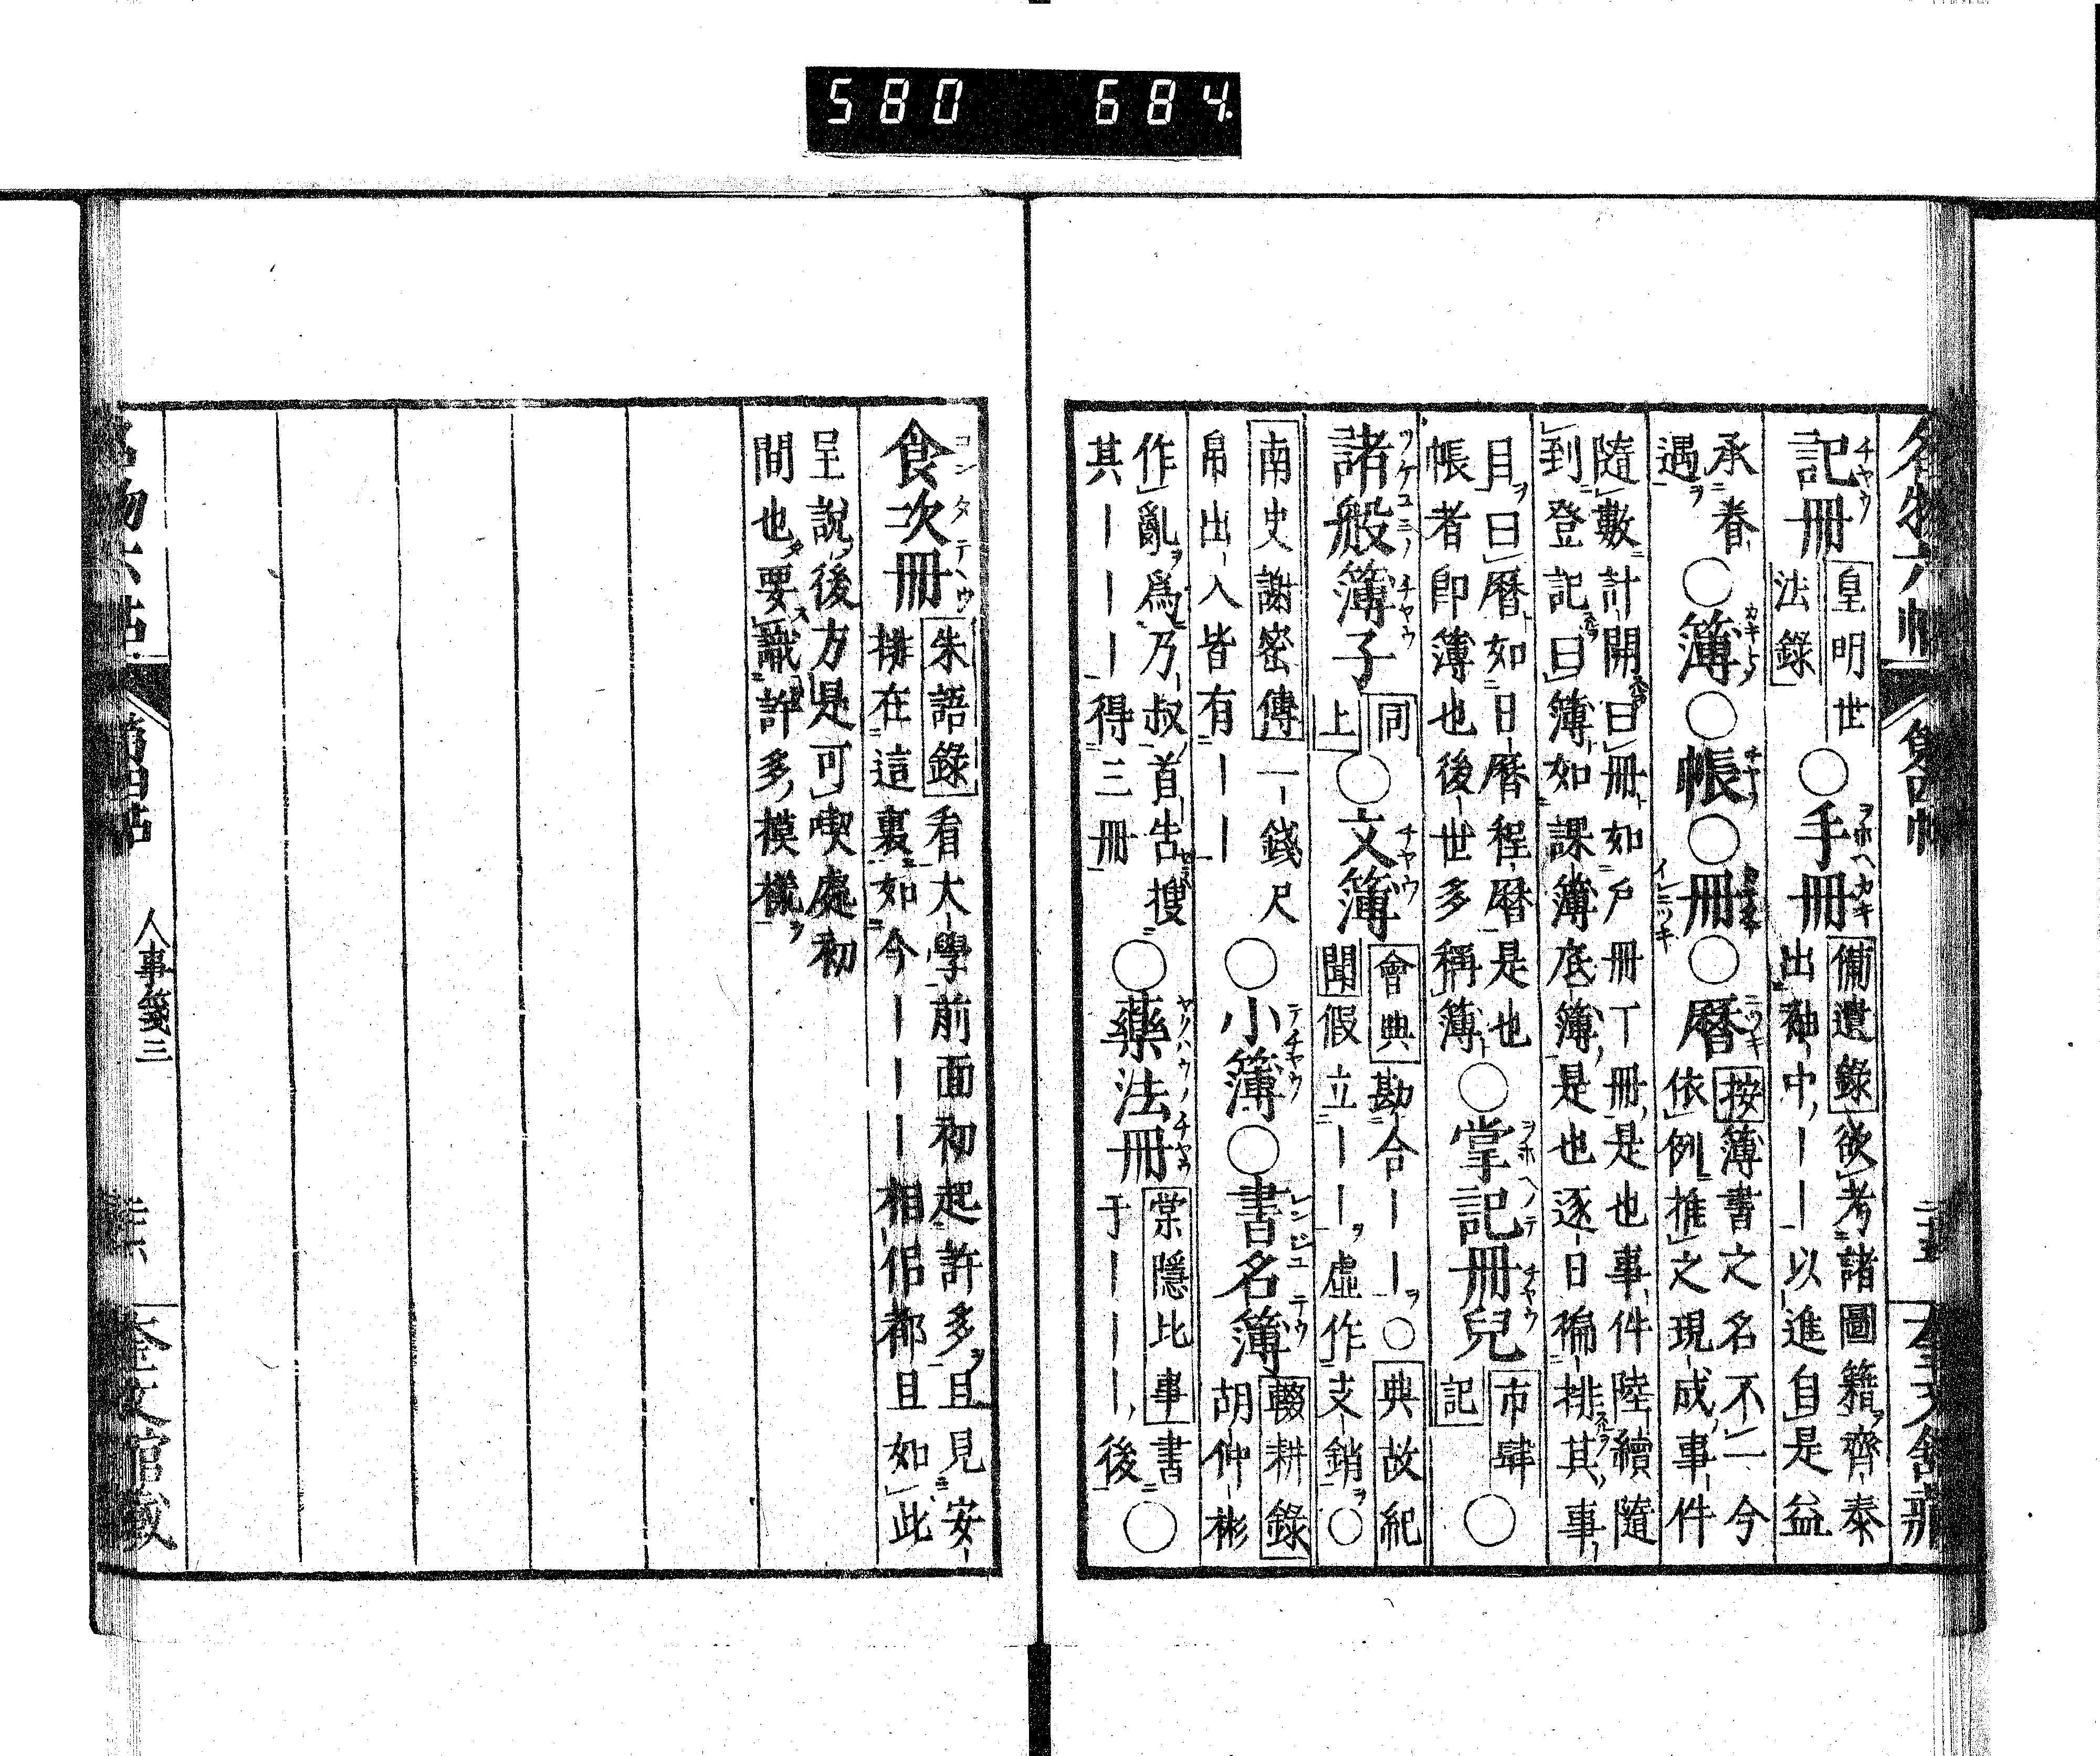 580 684.
名物六帖 第四帖 二十五 奎文舘藏
記冊 皇明世法錄 ○手冊 備遺錄 欲考諸圖籍齊泰出袖中｜｜以進自是益
承眷遇 ○簿○帳○冊○曆 按 簿書之名不一今依例推之現成事件
隨數計開曰冊如戶冊丁冊是也事件陸續隨到登記曰簿如課簿底簿是也逐日徧排其事
目曰曆如日曆程曆是也帳者卽簿也後世多稱簿 ○掌記冊兒 市肆記 ○
諸般簿子 同上 ○文簿 會典 勘合｜｜○ 典故紀聞 假立｜｜虛作支銷○
南史謝密傳 一錢尺帛出入皆有｜｜ ○小簿○書名簿 輟耕錄 胡仲彬
作亂爲乃叔首吿搜其｜｜｜得三冊 ○藥法冊 棠隱比事 書于｜｜｜後○
食次冊 朱語錄 看大學前面初起許多且見安排在這裏如今｜｜｜相似都且如此
呈說後方是可喫處初間也要識許多模樣
人事箋三 奎文館藏